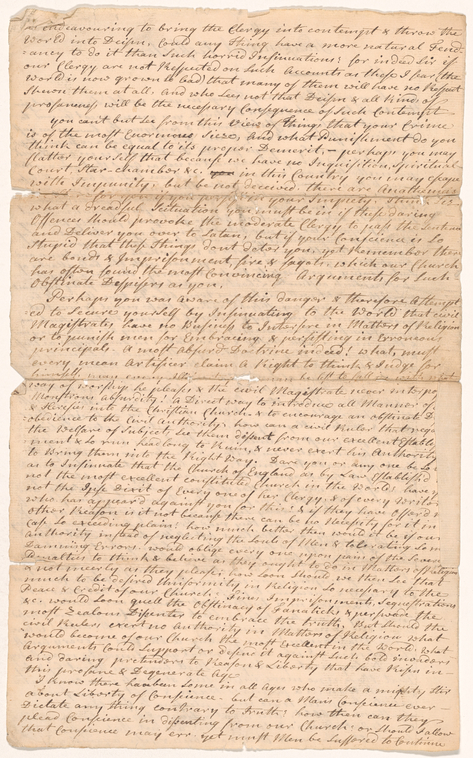 endeavouring to bring the Clergy into contempt & throw the
World into Deism. Could any thing have a more natural Tend
ency to do it than such horrid Insinuations! for indeed Sir if
our Clergy are not Respected on such Accounts as these I fear (the
World is now grown so bad) that many of them will have no Respect
shewn them at all. And who sees not that Deism & all kind of
profaneness will be the necessary Consequence of such Contempt
you can't but see from this View of things that your Crime
is of the most Enormous Size, And what Punishment do you
think can be equal to its proper Demerit, – perhaps you may
flatter yourself that because we have no Inquisition, Spiritual
Court, Star-chamber &c. in this Country you may escape
with Impunity. but be not deceived. there are Anathemas
for you if you persist in your Impiety.
what a dreadful Scituation you must be in if these daring
Offences should provoke the moderate Clergy to pass the Sentence
and Deliver you over to Satan; but if your Conscience is so
stupid that these things dont deter you, yet Remember there
are bonds & Imprisonment, fire & fagots, which our Church
has often found the most Convincing Arguments for such
Obstinate Despisers as you.
Perhaps you was aware of this danger & therefore Attempt
ed to Secure yourself by Insinuating to the World that civil
Magistrates have no Business to Interfere in Matters of Religion
or to punish men for Embracing & persisting in Erroneous
principals. A most absurd Doctrine indeed! what, must
every mean Artificer claim a Right to think & Judge for
himself
way of worship he pleases & the civil Magistrate never interpose
Monstrous absurdity! a Direct way to introduce all Manner of
& Heresies into the Christian Church & to encourage an obstinate D
obedience to the Civil Authority: how can a civil Ruler that regards
the Welfare of Subjects see them dissent from our excellent Establish
ment & so run headlong to Ruin, & never exert his Authority
to Bring them into the Right Way. Dare you or any one be so
as to Insinuate that the Church of England as by Law Established
not the most excellent constituted Church in the World; have
not the Ipse Dixit of Every one of her Clergy, & of every Writer
who has appeard against you for this; & if they have offered no
other Reason is it not because there can be no Necessity for it in
Case so exceeding plain? how much better then would it be if your
Authority instead of neglecting the Souls of Men & tolerating Som
Damning Errors. would oblige every one upon pain of the Sever
Penalties to think & believe as they ought to do in Matters of Religion
& not merely as they please: how soon should we then see that
much to be desired Uniformity in Religion, So necessary to the
Peace & Credit of our Church: Fines, Imprisonment, Sequestrations
&c. would soon quell the Obstinacy of Fanaticks, & perswade the
most Zealous Dissenter to embrace the truth, But should the
civil Rulers exert no Authority in Matters of Religion what
would become of our Church, the most Excellent in the World: what
Arguments could Support or defend it against such bold invaders
and daring pretenders to Reason & Liberty that have Risen in
this profane & Degenerate Age
I know there have been some in all Ages who make a mighty stir
about Liberty of Conscience – but can a Mans Conscience ever
Dictate any thing contrary to Truth; how then can they
plead Conscience in dissenting from our Church: or should I allow
that Conscience may err yet must Men be Suffered to Continue